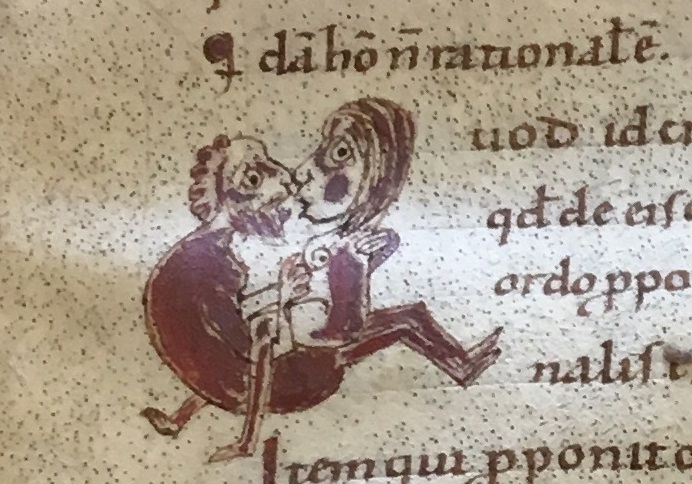 q dā hō n̄ rationał ē.
uod id
qd̄ de eise
ordo ppo
nalis t
Item qui pponit c